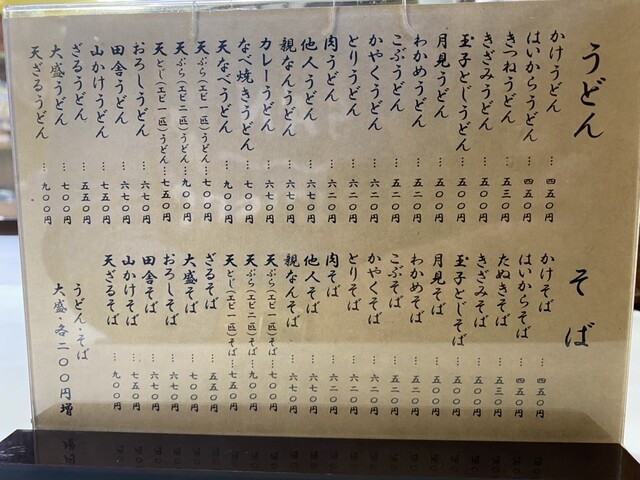 うどん
かけうどん…四五〇円
はいからうどん…四五〇円
きつねうどん…五三〇円
きざみうどん…五〇〇円
玉子とじうどん…五〇〇円
月見うどん…五〇〇円
わかめうどん…五二〇円
こぶうどん…五二〇円
かやくうどん…六二〇円
とりうどん…六二〇円
肉うどん…六二〇円
他人うどん…六七〇円
親なんうどん…六七〇円
カレーうどん…六七〇円
なべ焼きうどん…九〇〇円
天なべうどん…九〇〇円
天ぷら(エビ一匹)うどん…七〇〇円
天ぷら(エビ二匹)うどん…九〇〇円
天とじ(エビ一匹)うどん…七五〇円
おろしうどん…六七〇円
田舎うどん…六七〇円
山かけうどん…六七〇円
ざるうどん…五五〇円
大盛うどん…七〇〇円
天ざるうどん…九〇〇円
そば
かけそば…四五〇円
はいからそば…四五〇円
たぬきそば…五三〇円
きざみそば…五〇〇円
玉子とじそば…五〇〇円
月見そば…五〇〇円
わかめそば…五二〇円
こぶそば…五二〇円
かやくそば…六二〇円
とりそば…六二〇円
肉そば…六二〇円
他人そば…六七〇円
親なんそば…六七〇円
天ぷら(エビ一匹)そば…七〇〇円
天ぷら(エビ二匹)そば…九〇〇円
天とじ(エビ一匹)そば…七五〇円
ざるそば…五五〇円
大盛そば…七〇〇円
おろしそば…六七〇円
田舎そば…六七〇円
山かけそば…六七〇円
天ざるそば…九〇〇円
うどん・そば
大盛・各二〇〇円増